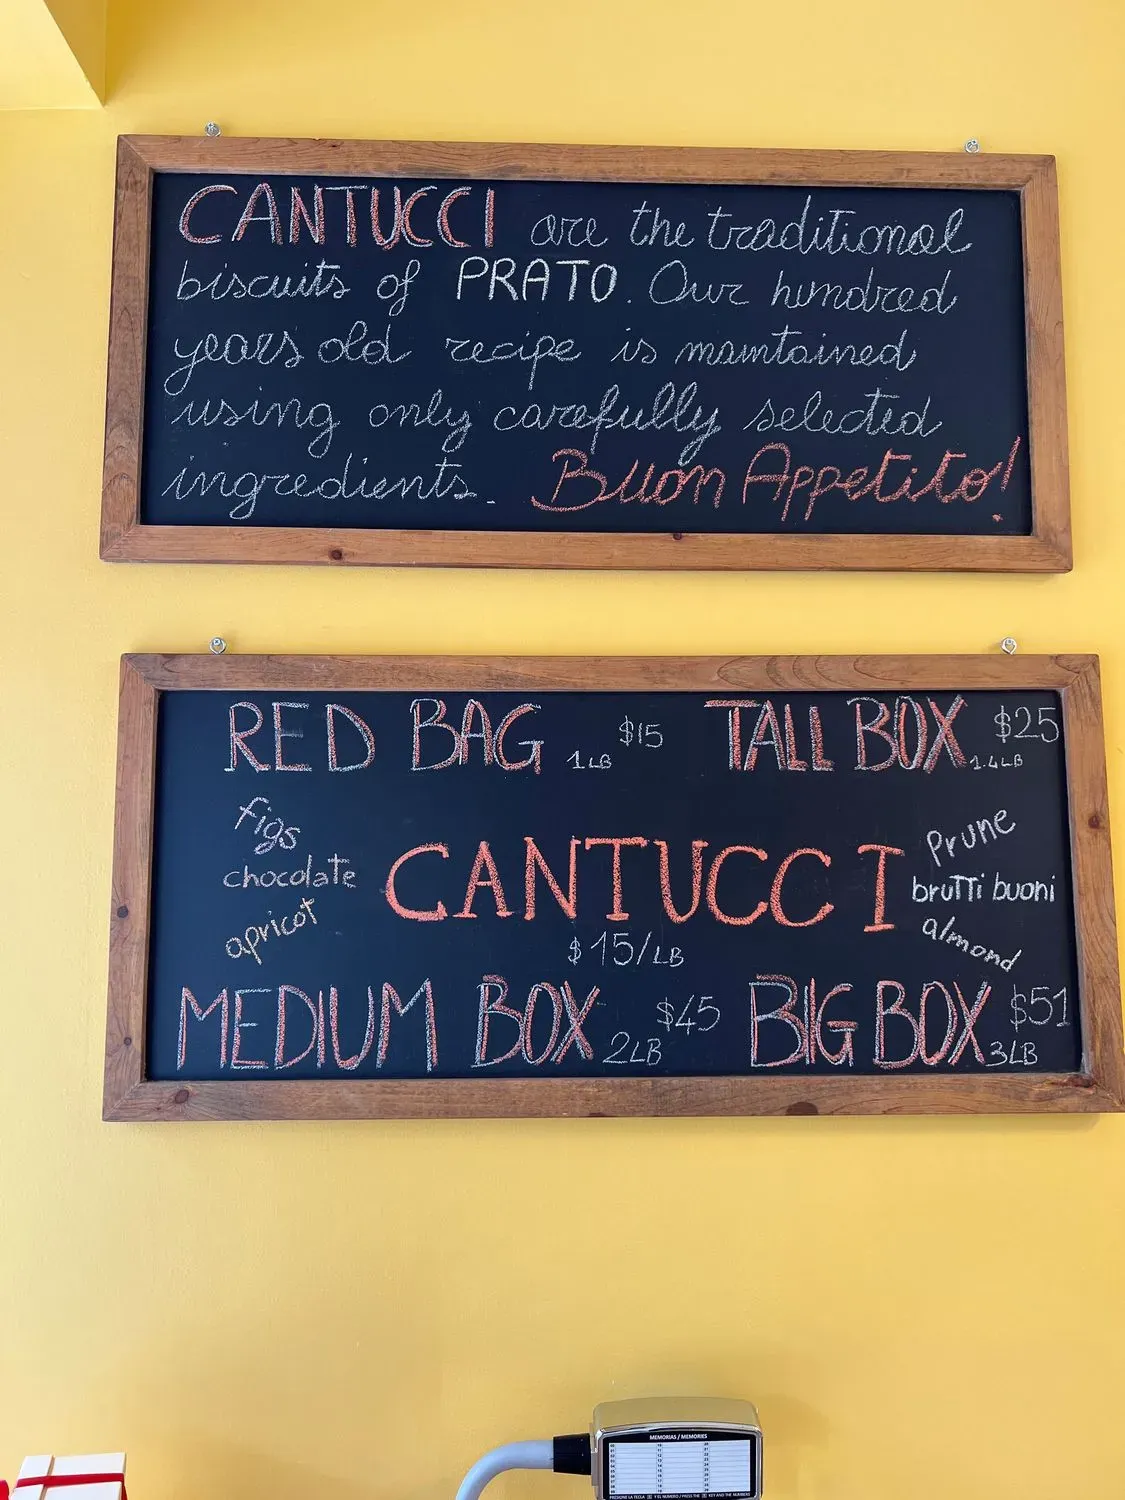 CANTUCCI are the traditional
biscuits of PRATO. Our hundred
years old recipe is maintained
using only carefully selected
ingredients. Buon Appetito!
RED BAG 1LB $15 TALL BOX 1.4LB $25
figs
chocolate
apricot
CANTUCCI
$15/LB
Prune
brutti buoni
almond
MEDIUM BOX 2LB $45 BIG BOX 3LB $51
MEMORIAS / MEMORIES